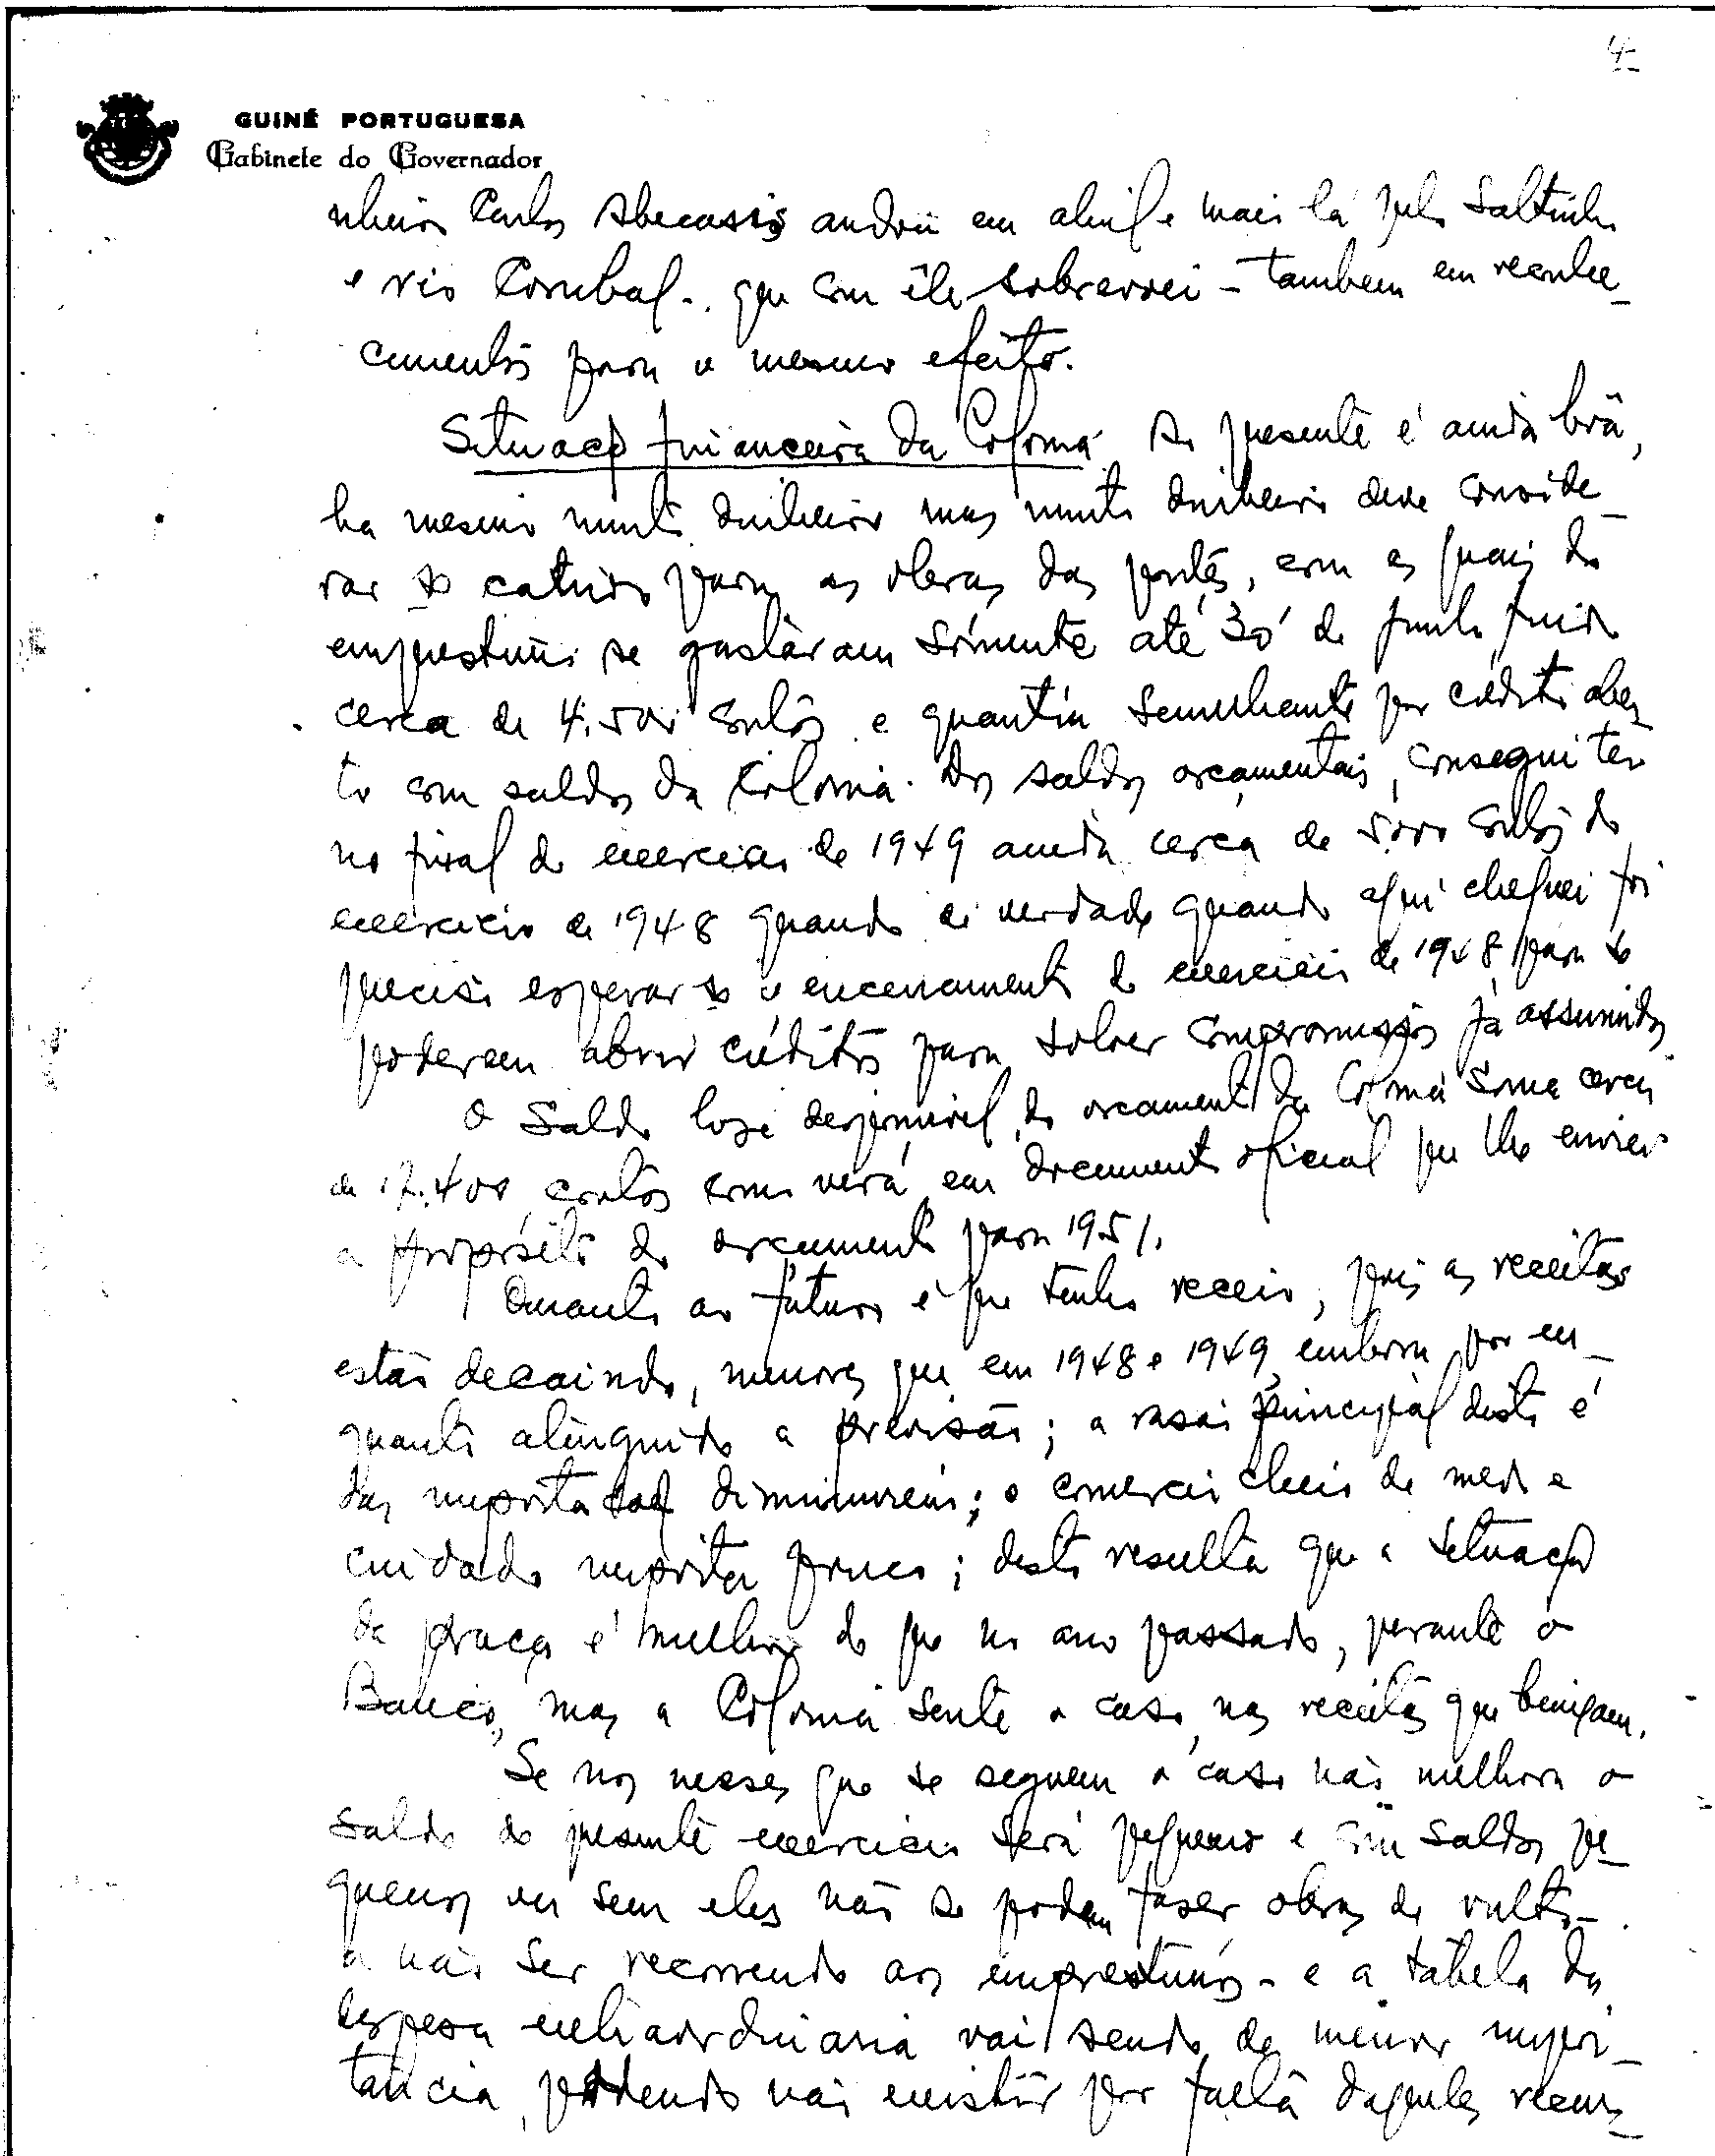 4-
GUINÉ PORTUGUESA
Gabinete do Governador
nheiro Carlos Abecassis andou em abril e maio lá pelo Saltinho
e rio Corubal - que com êle sobrevoei - tambem em reconhe-
cimentos para o mesmo efeito.
Situação financeira da Colonia. De presente é ainda bôa,
ha mesmo muito dinheiro mas muito dinheiro deve conside-
rar se cativo para as obras das pontes, com as quais do
emprestimo se gastáram sómente até 30 de junho findo
cerca de 4.500 contos e quantia semelhante por crédito aber-
to com saldos da Colonia. Dos saldos orçamentais, consegui ter
no final do exercicio de 1949 ainda cerca de 5.000 contos do
exercicio de 1948 quando é verdade quando aqui cheguei foi
preciso esperar se o encerramento do exercicio de 1948 para se
poderem abrir créditos para solver compromissos já assumidos.
O saldo hoje disponivel do orçamento da Colonia soma cerca
de 12.400 contos como verá em documento oficial que lhe enviei
a propósito do orçamento para 1951.
Quanto ao futuro é que tenho receio, pois as receitas
estão decaindo, menores que em 1948 e 1949, embora por en-
quanto atingindo a previsão; a rasão principal disto é
das importações diminuirem; o comercio cheio de medo e
cuidado importa pouco; disto resulta que a situação
da praça é melhor do que no ano passado, perante o
Banco, mas a Colonia sente o caso nas receitas que baixam.
Se nos meses que se seguem o caso não melhora o
saldo do presente exercicio será pequeno e com saldos pe-
quenos ou sem eles não se podem faser obras de vulto -
a não ser recorrendo aos emprestimos - e a tabela da
despesa extraordinaria vai sendo de menor impor-
tancia, podendo não existir por falta daqueles recur-